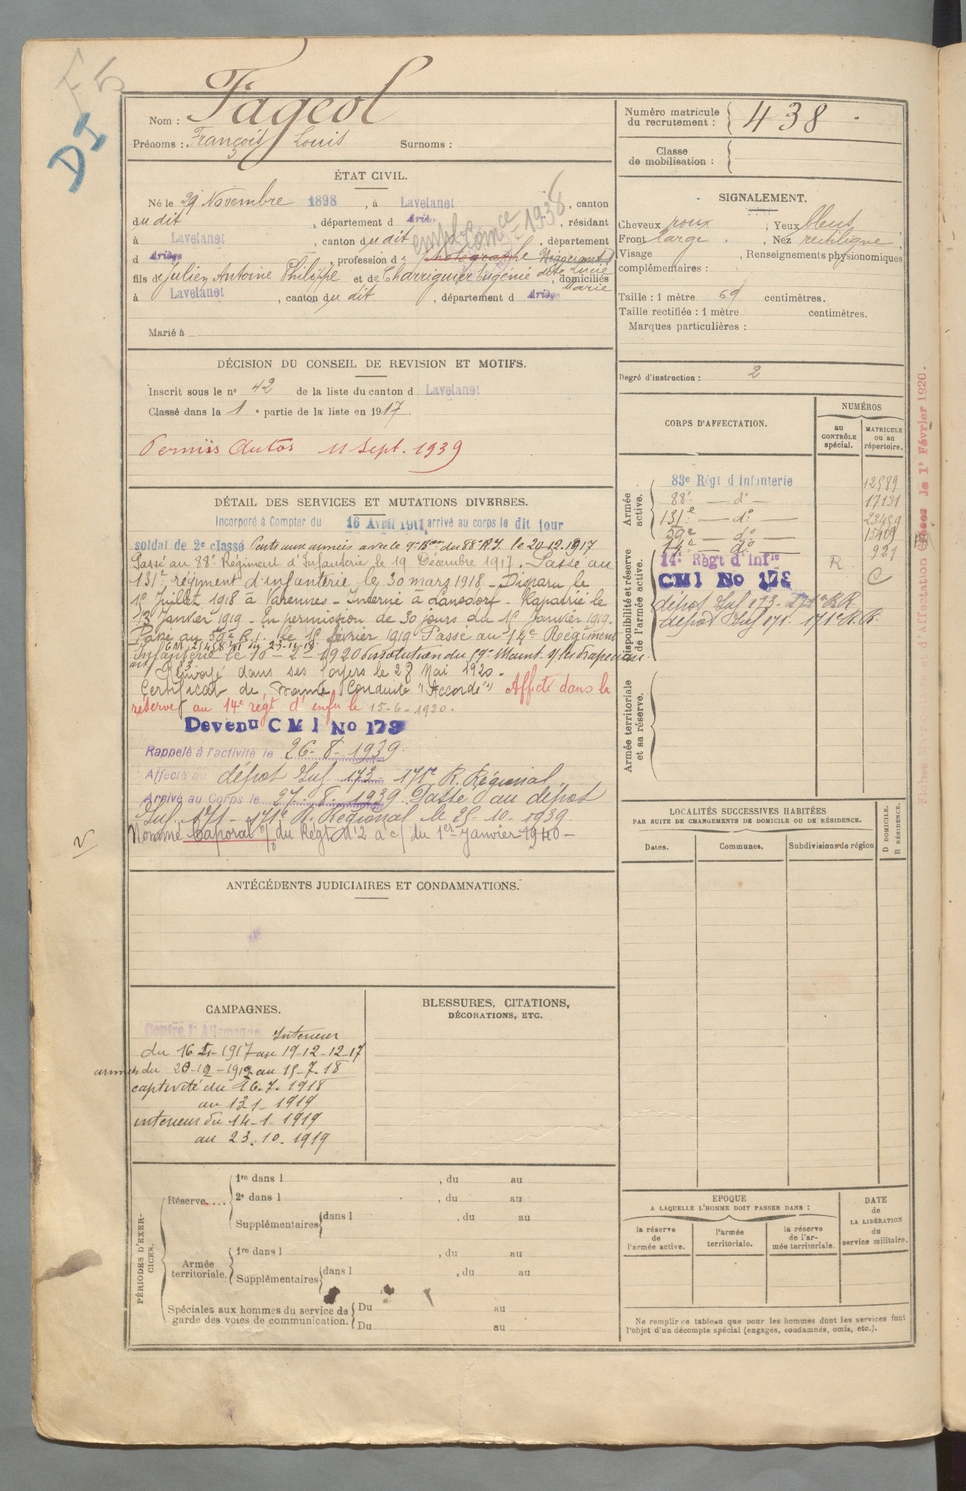 F 5
D I
Nom : Fageol
Prénoms : François Louis Surnoms :
ÉTAT CIVIL.
Né le 29 Novembre 1898, à Lavelanet, canton
du dit, département d Ariè, résidant
à Lavelanet, canton du dit, département
d Ariège, profession de photographe
fils de Julien Antoine Philippe et de Eugénie dite Lucie Marie, domiciliés
à Lavelanet, canton du dit, département d Ariège
1938
Marié à
DÉCISION DU CONSEIL DE REVISION ET MOTIFS.
Inscrit sous le n° 42 de la liste du canton d Lavelanet
Classé dans la 1e partie de la liste en 1917.
Permis autos 11 Sept. 1939
DÉTAIL DES SERVICES ET MUTATIONS DIVERSES.
Incorporé à Compter du 16 Avril 1917 arrivé au corps le dit jour
soldat de 2e classe Parti aux armées avec le 9e Bon du 88e R.I. le 20-12-1917
Passé au 88e Régiment d'Infanterie le 19 Décembre 1917. Passé au
131e régiment d'infanterie le 30 mars 1918 - Disparu le
15 Juillet 1918 à Varennes - Interné à Lansdorf - Rapatrié le
13 Janvier 1919 - En permission de 30 jours du 15 Janvier 1919.
Passé au 59e R.I. le 15 février 1919 Passé au 14e Régiment
Infanterie le 10-2-1920 dissolution du
Renvoyé dans ses foyers le 28 Mai 1920.
Certificat de Bonne Conduite "Accordé" Affecté dans la
réserve au 14e régt d'infie le 15-6-1920.
Devenu C M I No 173
Rappelé à l'activité le 26-8-1939.
Affecté au dépôt Inf 173 - 171e R. Régional
Arrivé au Corps le 27-8-1939 Passé au dépôt
Inf 171 - 171e R. Régional le 25-10-1939
Nommé Caporal du Régt N° 2 a c/ du 1er Janvier 1940 -
ANTÉCÉDENTS JUDICIAIRES ET CONDAMNATIONS.
CAMPAGNES.
Contre l'Allemagne Intérieur
du 16-4-1917 au 19-12-17
armées du 20-12-1917 au 15-7-18
captivité du 16.7.1918
au 13 1 1919
intérieur du 14-1-1919
au 23.10.1919
BLESSURES, CITATIONS,
DÉCORATIONS, ETC.
PÉRIODES D'EXERCICES.
Réserve....
1re dans l , du au
2e dans l , du au
Supplémentaires dans l , du au
Armée territoriale.
1re dans l , du au
Supplémentaires dans l , du au
Spéciales aux hommes du service de garde des voies de communication.
Du au
Du au
Numéro matricule du recrutement : 438
Classe de mobilisation :
SIGNALEMENT.
Cheveux roux ; Yeux bleus
Front large ; Nez rectiligne
Visage , Renseignements physionomiques
complémentaires :
Taille : 1 mètre 69 centimètres.
Taille rectifiée : 1 mètre centimètres.
Marques particulières :
Degré d'instruction : 2
CORPS D'AFFECTATION.
NUMÉROS
au CONTRÔLE spécial.
MATRICULE ou au répertoire.
Armée active.
83e Régt d'Infanterie 12589
88e — do — 17131
131e — do —
59e — do —
14e — do 921
Disponibilité et réserve de l'armée active.
14e Régt d'Infie R
CMI No 173 C
dépôt Inf 173 - 171e R.R.
dépôt Inf 171 - 171e R.R.
Armée territoriale et sa réserve.
LOCALITÉS SUCCESSIVES HABITÉES
PAR SUITE DE CHANGEMENTS DE DOMICILE OU DE RÉSIDENCE.
Dates. Communes. Subdivisions de région
D DOMICILE.
R RÉSIDENCE.
EPOQUE
A LAQUELLE L'HOMME DOIT PASSER DANS :
la réserve de l'armée active.
l'armée territoriale.
la réserve de l'armée territoriale.
DATE de LA LIBÉRATION du service militaire.
Ne remplir ce tableau que pour les hommes dont les services font
l'objet d'un décompte spécial (engagés, condamnés, omis, etc.).
d'Affectation le 1er Février 1920.